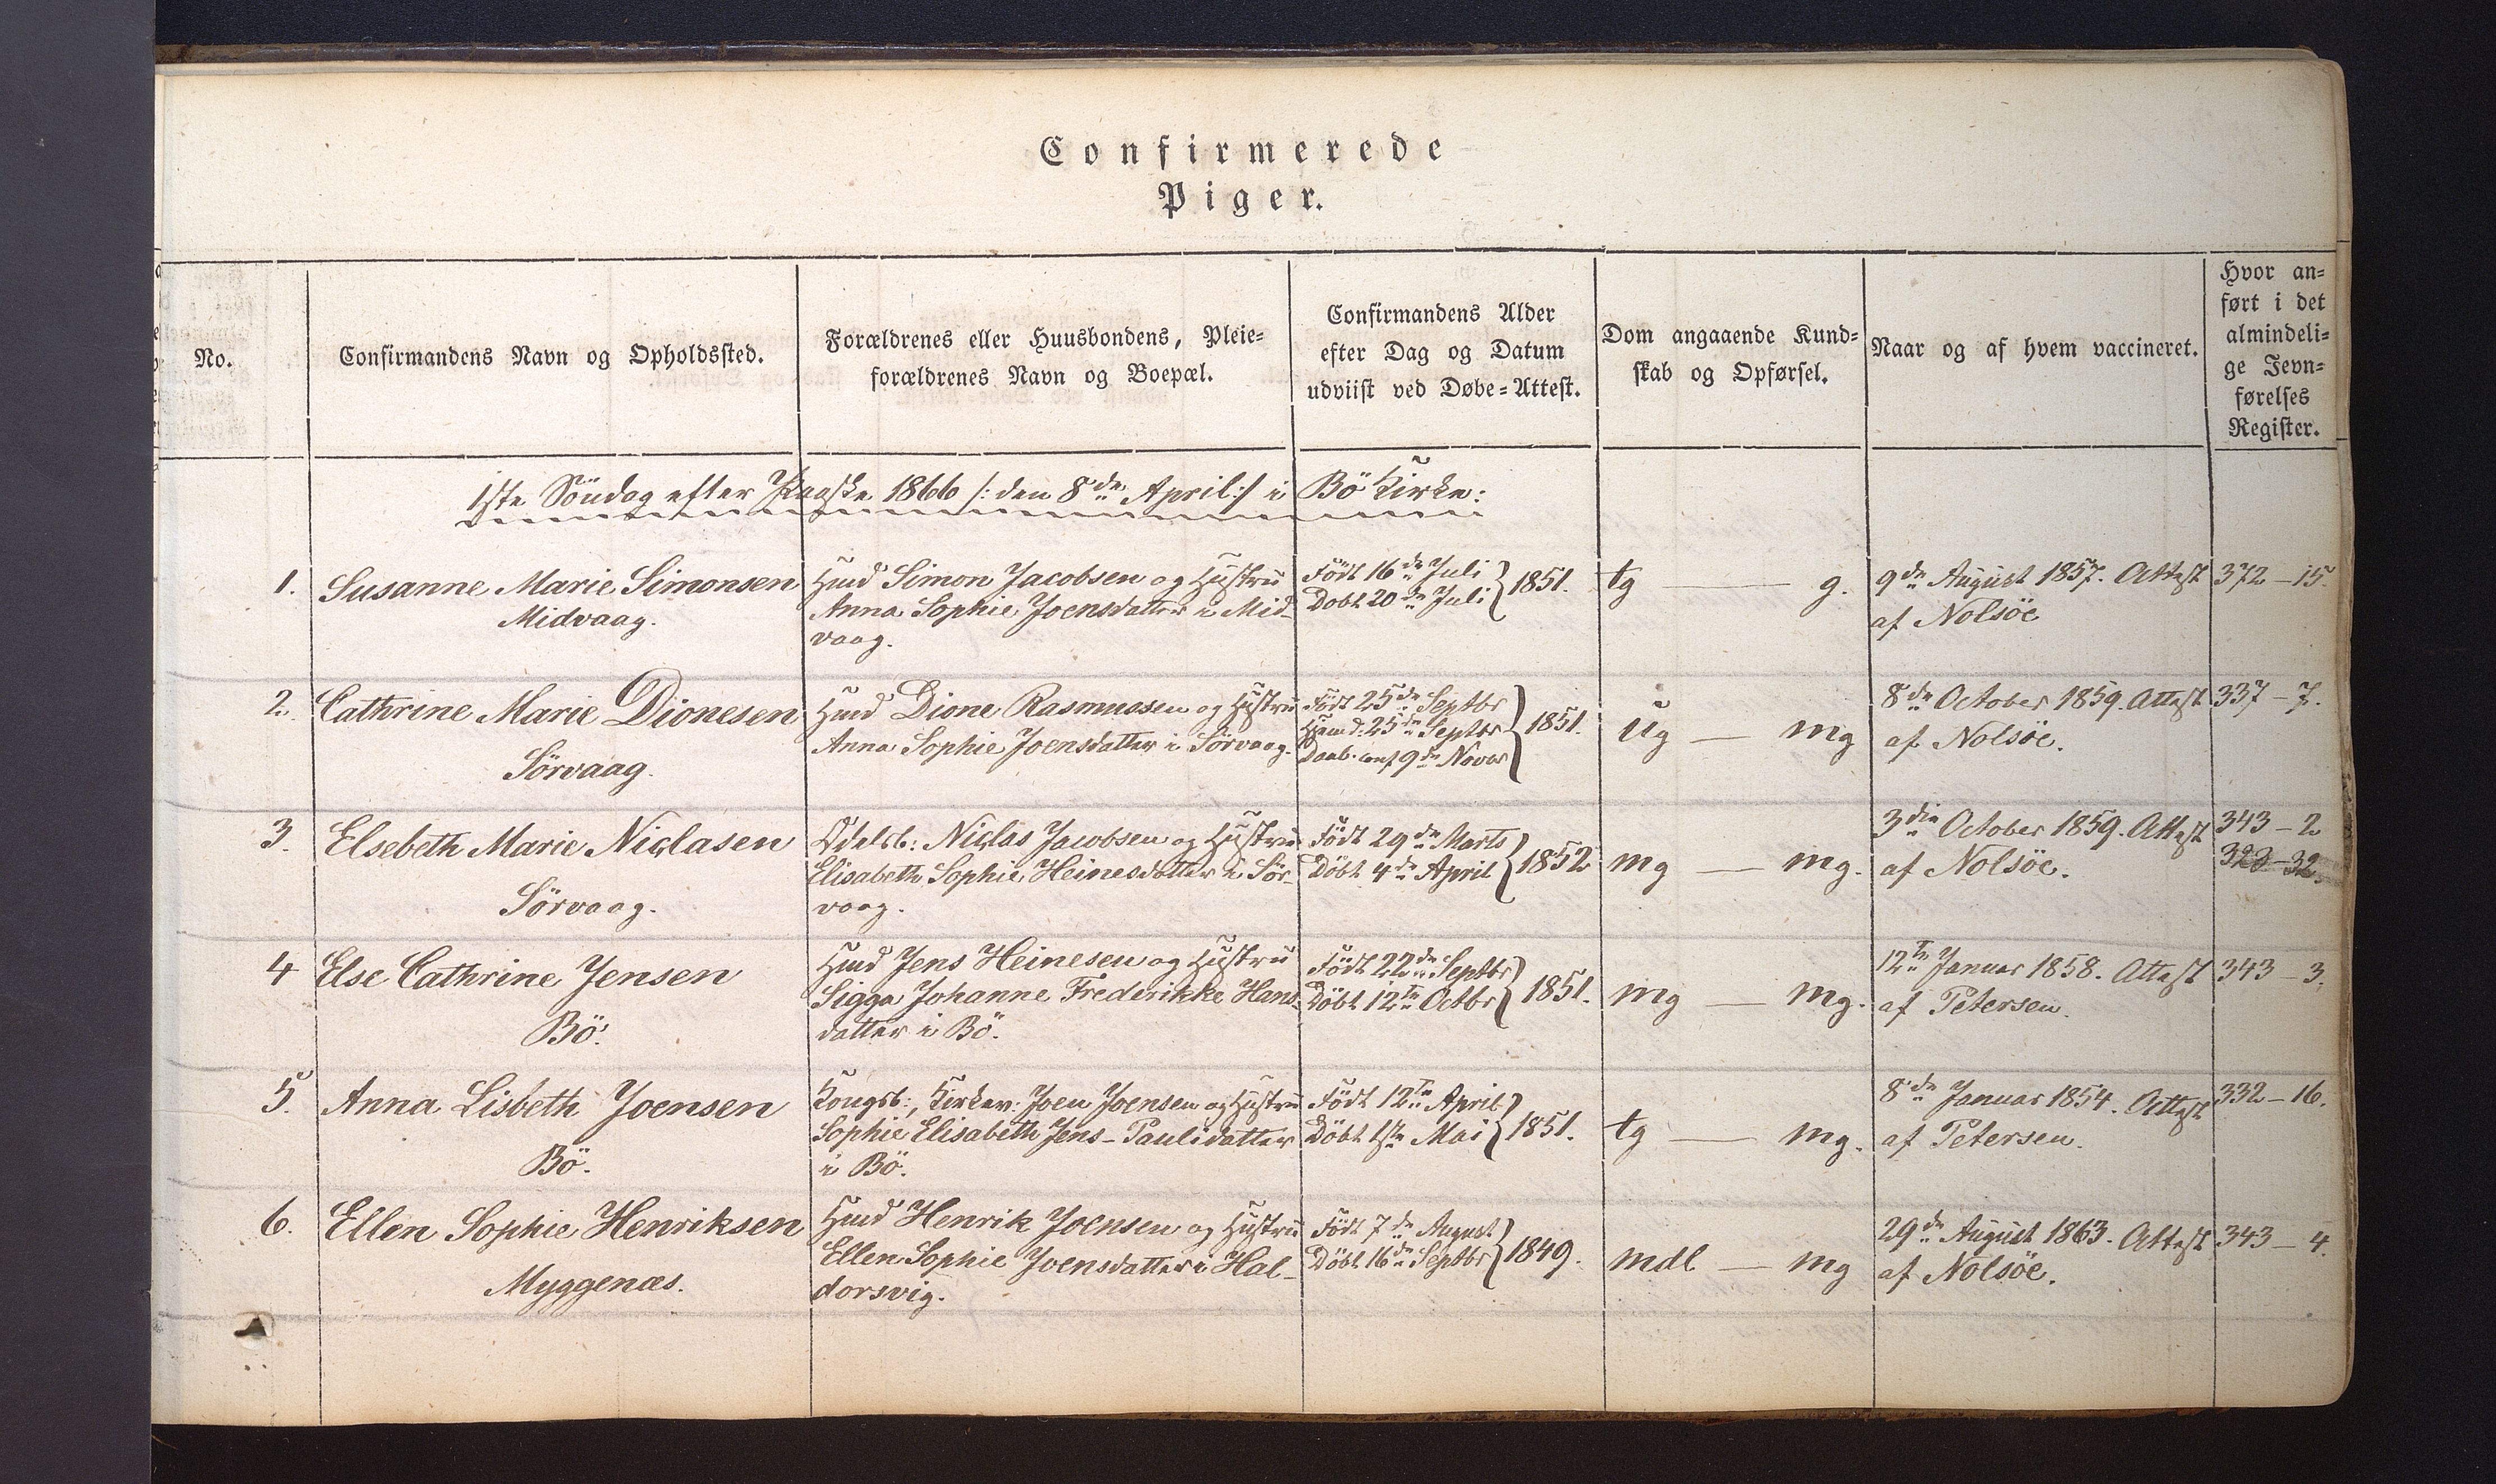 Confirmerede
Piger.
No.
Confirmandens Navn og Opholdssted.
Forældrenes eller Huusbondens, Pleie-
forældrenes Navn og Boepæl.
Confirmandens Alder
efter Dag og Datum
udviist ved Døbe-Attest.
Dom angaaende Kund-
skab og Opførsel.
Naar og af hvem vaccineret.
Hvor an-
ført i det
almindeli-
ge Jevn-
førelses
Register.
1ste Söndag efter Paaske 1866 /: den 8de April :/ i Bö Kirke:
1.
Susanne Marie Simonsen
Midvaag.
Hmd Simon Jacobsen og Hustru
Anna Sophie Joensdatter i Mid-
vaag.
Födt 16de Juli
Döbt 20de Juli
1851.
tg — g.
9de August 1857. Attest
af Nolsöe
372 – 15.
2.
Cathrine Marie Dionesen
Sörvaag.
Hmd Dione Rasmussen og Hustru
Anna Sophie Joensdatter i Sörvaag.
Födt 25de Septbr
Hjemd: 25de Septbr
Daab. conf 9de Novbr
1851.
ug — mg
8de October 1859. Attest
af Nolsöe.
337 – 7.
3.
Elsebeth Marie Niclasen
Sörvaag.
Odelsb: Niclas Jacobsen og Hustru
Elisabeth Sophie Heinesdatter i Sör-
vaag.
Födt 29de Marts
Döbt 4de April
1852
mg — mg.
3die October 1859. Attest
af Nolsöe.
343 – 2
323 – 32.
4
Else Cathrine Jensen
Bö.
Hmd Jens Heinesen og Hustru
Sigga Johanne Frederikke Hans-
datter i Bö.
Födt 22de Septbr
Döbt 12te Octbr
1851.
mg — mg.
12te Januar 1858. Attest
af Petersen.
343 – 3.
5.
Anna Lisbeth Joensen
Bö.
Kongsb:, Kirkev: Joen Joensen og Hustru
Sophie Elisabeth Jens-Paulidatter
i Bö.
Födt 12te April
Döbt 1ste Mai
1851.
tg — mg.
8de Januar 1854. Attest
af Petersen.
332 – 16.
6.
Ellen Sophie Henriksen
Myggenæs.
Hmd Henrik Joensen og Hustru
Ellen Sophie Joensdatter i Hal-
dorsvig.
Födt 7de August
Döbt 16de Septbr
1849.
mdl — mg
29de August 1863. Attest
af Nolsöe.
343 – 4.